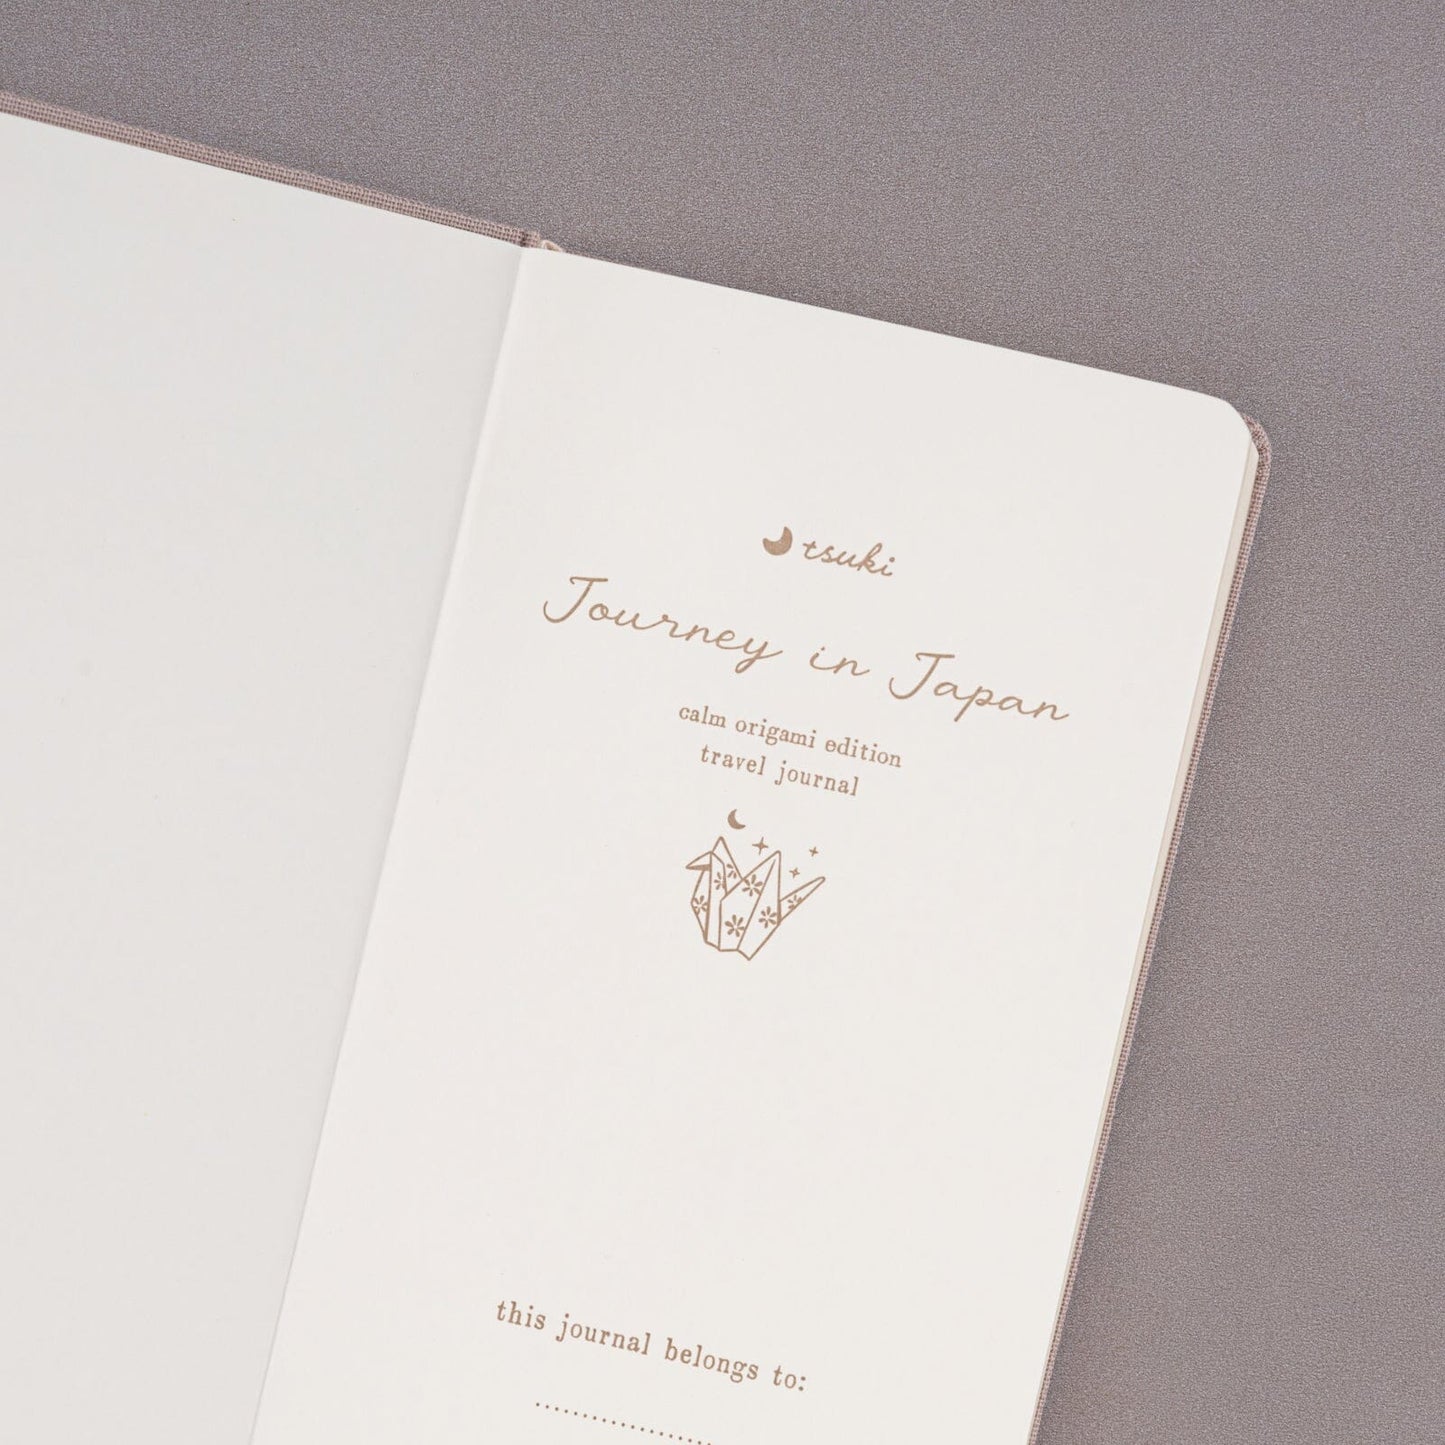 tsuki
Journey in Japan
calm origami edition
travel journal
this journal belongs to: